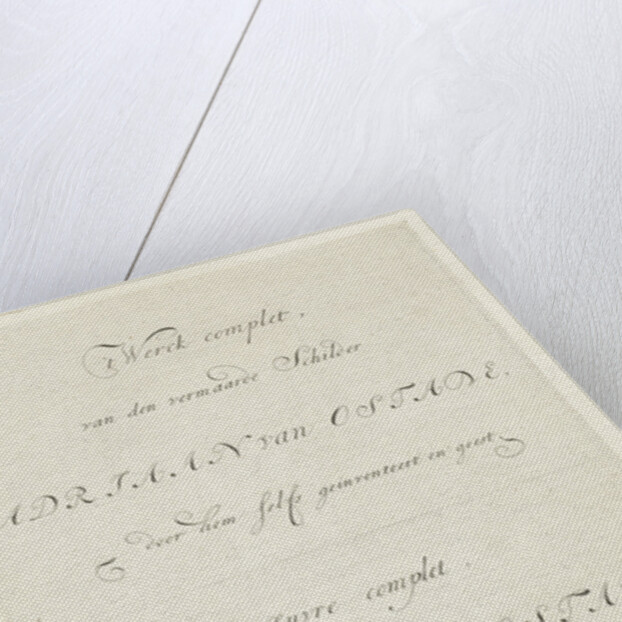 'tWerck complet,
van den vermaarde Schilder
ADRIAAN van OSTADE.
door hem selfs geinventeert en geest
complet.